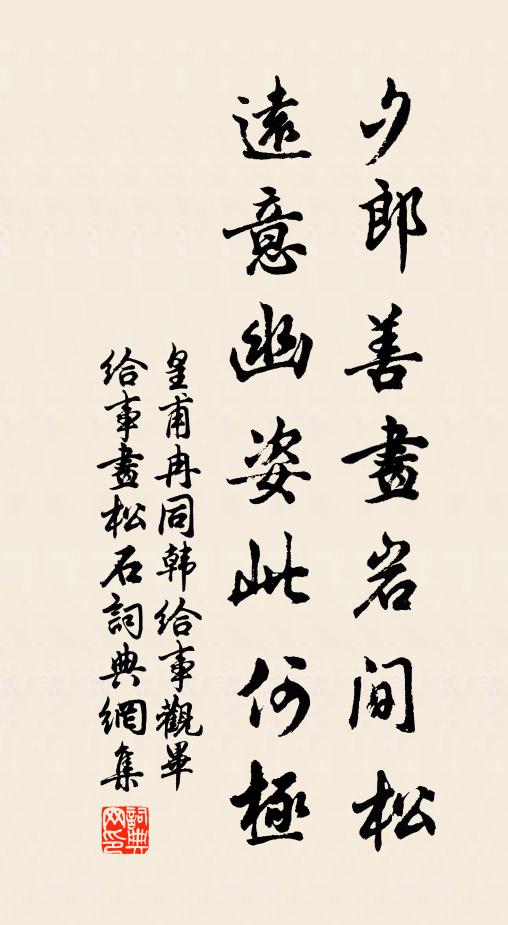 夕郎善畫岩间松
遠意幽姿此何極
皇甫冉同韩给事觀畢
给事畫松石詞典網集
詞典網印